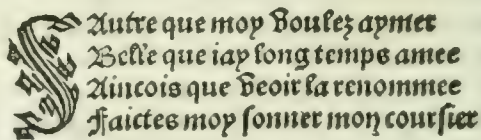 SAutre que moy voulez aymer
Belle que iay long temps amee
Aincois que veoir la renommee
Faictes moy ſonner mon courſier